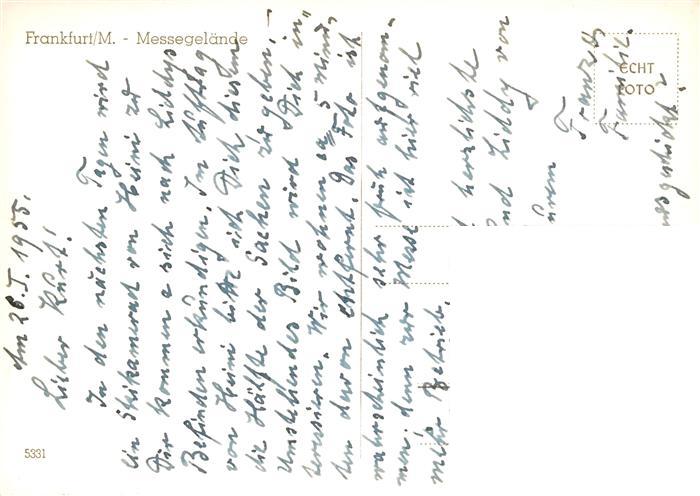 Frankfurt/M. - Messegelände
ECHT
FOTO
5331
Am 26.I.1955.
Lieber Kurt!
In den nächsten Tagen wird
ein Skikamerad von Heini zu
Dir kommen, sich nach Liddys
Befinden erkundigen. Im Auftrag
von Heini bitte ich Dich diesem
die Hälfte der Sachen zu geben. -
Umstehendes Bild wird Dich in-
teressieren. Wir wohnen ca 5 Minu-
ten davon entfernt. Das Foto ist
wahrscheinlich sehr früh aufgenom-
men, denn zur Messe ist hier viel
mehr Betrieb.
herzlichste
nd Liddy von
Eurem
Franz u.
Familie.